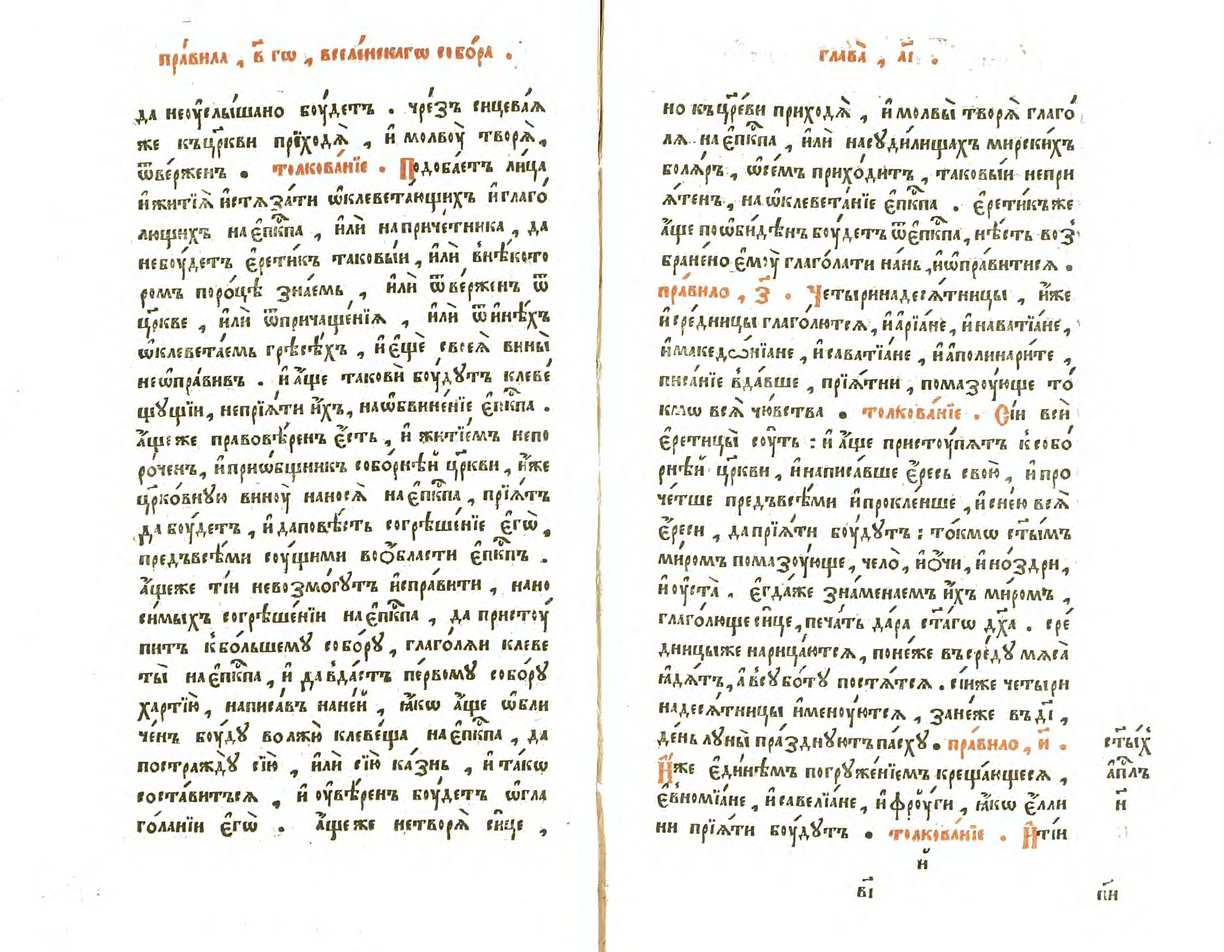 пра́вила , в҃ гѡ , вселе́нскагѡ собо́ра .
да неѹ҆слы́шано бѹ́детъ . чре́зъ сицева́ѧ
же къцр҃кви прїходѧ̀ , и҆ молвѹ̀ творѧ̀ ,
ѿве́рженъ . толкова́нїе . Подоба́етъ лица̀
и҆житїѧ̀ и҆стѧза́ти ѡ҆клевета́ющихъ и҆глаго́
лющихъ нае҆пк҃па , и҆лѝ напричетника , да
небѹ́детъ е҆рети́къ таковы́и , и҆лѝ внѣ́кото
ромъ поро́цѣ зна́емь , и҆лѝ ѿве́рженъ ѿ
цр҃кве , и҆лѝ ѿпричаще́нїѧ , и҆лѝ ѿи҆нѣ́хъ
ѡ҆клевета́емь грѣсѣ́хъ , и҆е҆щѐ своеѧ̀ вины̀
неѡ҆пра́вивъ . и҆а҆́ще такови́ бѹ́дѹтъ клеве́
щѹщїи, непрїѧ́ти и҆́хъ, наѡ҆бвине́нїе е҆пк҃па .
а҆́ще же правовѣ́ренъ е҆́сть , и҆ житїе́мъ непо
ро́ченъ , и҆прио́бщникъ собо́рнѣй цр҃кви , и҆́же
цр҃ко́вную винѹ̀ наносѧ̀ нае҆пк҃па , прїѧ́тъ
да бѹ́детъ , и҆даповѣ́сть согрѣше́нїе е҆гѡ̀ ,
предъвсѣ́ми сѹ́щими воо҆́бласти е҆пк҃пъ .
а҆́щеже ті́и невозмо́гѹтъ и҆спра́вити , нано
си́мыхъ согрѣше́нїи нае҆пк҃па , да пристѹ́
питъ кбо́льшемѹ собо́рѹ , глаго́лѧи клеве
ты̀ нае҆пк҃па , и҆ да вда́стъ пе́рвомѹ собо́рѹ
ха́ртїю , написа́въ на́ней , ꙗ҆́кѡ а҆́ще ѡ҆бли
че́нъ бѹ́дѹ во лжю̀ клевеща̀ нае҆пк҃па , да
постра́ждѹ сїю̀ , и҆лѝ сїю̀ ка́знь , и҆та́кѡ
соста́витьсѧ , и҆ ѹ҆вѣ́ренъ бѹ́детъ ѡ҆гла
го́ланїи е҆гѡ̀ . а҆́ще же нетворѧ̀ си́це ,
глава̀ , а҃і .
но къцр҃еви приходѧ̀ , и҆молвы̀ творѧ̀ глаго́
лѧ нае҆пк҃па , и҆лѝ насѹди́лищахъ мирски́хъ
болѧ́ръ , ѡ҆се́мъ прихо́дитъ , таковы́и непри
ѧ́тенъ , наѡ҆клевета́нїе е҆пк҃па . е҆рети́къже
а҆́ще поѡ҆би́дѣнъ бѹ́детъ ѿе҆пк҃па , нѣ́сть воз
бране́но е҆мѹ̀ глаго́лати нань , и҆ѡ҆пра́витисѧ .
пра́вило , з҃ . Четыринадесѧ́тницы , и҆́же
и҆сре́дницы глаго́лютсѧ , и҆а҆рїа́не , и҆навaтїа́не ,
и҆македѡнїане , и҆саватїа́не , и҆а҆полинари́те ,
писа́нїе вда́вше , прїѧ́тни , помазѹ́юще то́
кмѡ всѧ̀ чю́вства . толкова́нїе . Сі́и всѝ
е҆ретицы̀ сѹ́ть : и҆ а҆́ще пристѹ́пѧтъ к собо́
рнѣй цр҃кви , и҆написа́вше е҆́ресь свою̀ , и҆про
че́тше предъвсѣ́ми и҆прокле́нше , и҆сне́ю всѧ̀
е҆́реси , дапрїѧ́ти бѹ́дѹтъ : то́кмѡ ст҃ы́мъ
ми́ромъ помазѹ́юще , чело̀ , и҆о҆́чи , и҆но́здри ,
и҆ѹ҆ста̀ . е҆гда́же зна́менаемъ и҆́хъ ми́ромъ ,
глаго́люще си́це , печа́ть да́ра ст҃а́гѡ дх҃а . сре́
дницыже нарица́ютсѧ , поне́же въ сре́дѹ мѧса̀
ꙗ҆дѧ́тъ , а҆ в сѹбо́тѹ постѧ́тсѧ . сі́иже четыри
надесѧ́тницы и҆менѹ́ютсѧ , зане́же въ д҃і ,
де́нь лѹны̀ пра́зднѹютъ па́схѹ . пра́вило , и҃ .
И҆́же е҆ди́нѣмъ погрѹже́нїемъ креща́ющесѧ ,
е҆вномїа́не , и҆савелїа́не , и҆ фрѹ́ги , ꙗ҆́кѡ е҆́лли
ни прїѧ́ти бѹ́дѹтъ . толкова́нїе . И҆ті́и
ст҃ы́х
а҆пл҃ъ
и҃
и҃
в҃і
п҃и